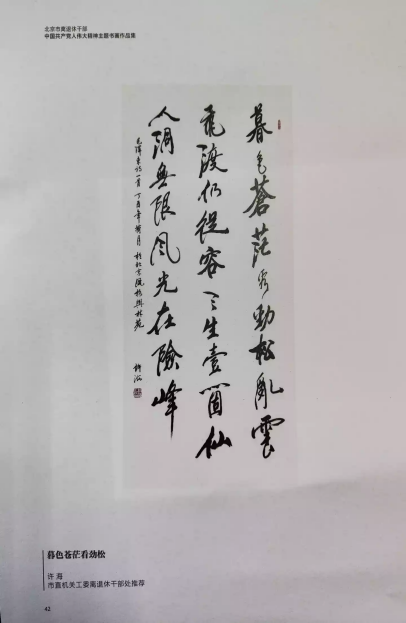 北京市离退休干部
中国共产党人伟大精神主题书画作品集
暮色蒼茫看勁松亂雲
飛渡仍從容天生壹個仙
人洞無限風光在險峰
毛澤東詩一首 丁酉年
許海
暮色苍茫看劲松
许 海
市直机关工委离退休干部处推荐
42